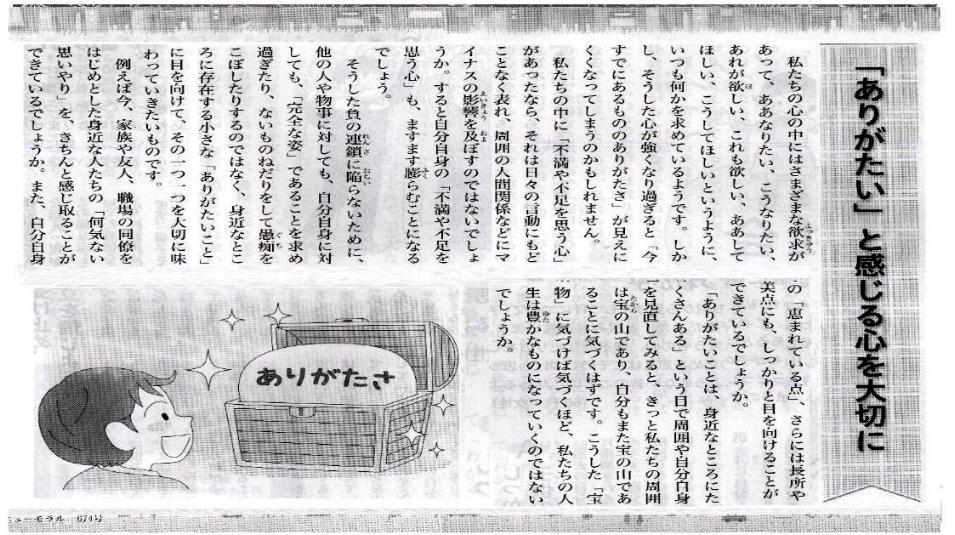 「ありがたい」と感じる心を大切に
私たちの心の中にはさまざまな欲求が
あって、ああなりたい、こうなりたい、
あれが欲しい、これも欲しい、ああして
ほしい、こうしてほしいというように、
いつも何かを求めているようです。しか
し、そうした心が強くなり過ぎると「今
すでにあるもののありがたさ」が見えに
くくなってしまうのかもしれません。
私たちの中に「不満や不足を思う心」
があったなら、それは日々の言動にもど
ことなく表れ、周囲の人間関係などにマ
イナスの影響を及ぼすのではないでしょ
うか。すると自分自身の「不満や不足を
思う心」も、ますます膨らむことになる
でしょう。
そうした負の連鎖に陥らないために、
他の人や物事に対しても、自分自身に対
しても、「完全な姿」であることを求め
過ぎたり、ないものねだりをして愚痴を
こぼしたりするのではなく、身近なとこ
ろに存在する小さな「ありがたいこと」
に目を向けて、その一つ一つを大切に味
わっていきたいものです。
例えば今、家族や友人、職場の同僚を
はじめとした身近な人たちの「何気ない
思いやり」を、きちんと感じ取ることが
できているでしょうか。また、自分自身
の「恵まれている点」、さらには長所や
美点にも、しっかりと目を向けることが
できているでしょうか。
「ありがたいことは、身近なところにた
くさんある」という目で周囲や自分自身
を見直してみると、きっと私たちの周囲
は宝の山であり、自分もまた宝の山であ
ることに気づくはずです。こうした「宝
物」に気づけば気づくほど、私たちの人
生は豊かなものになっていくのではない
でしょうか。
ありがたさ
ニューモラル 674号